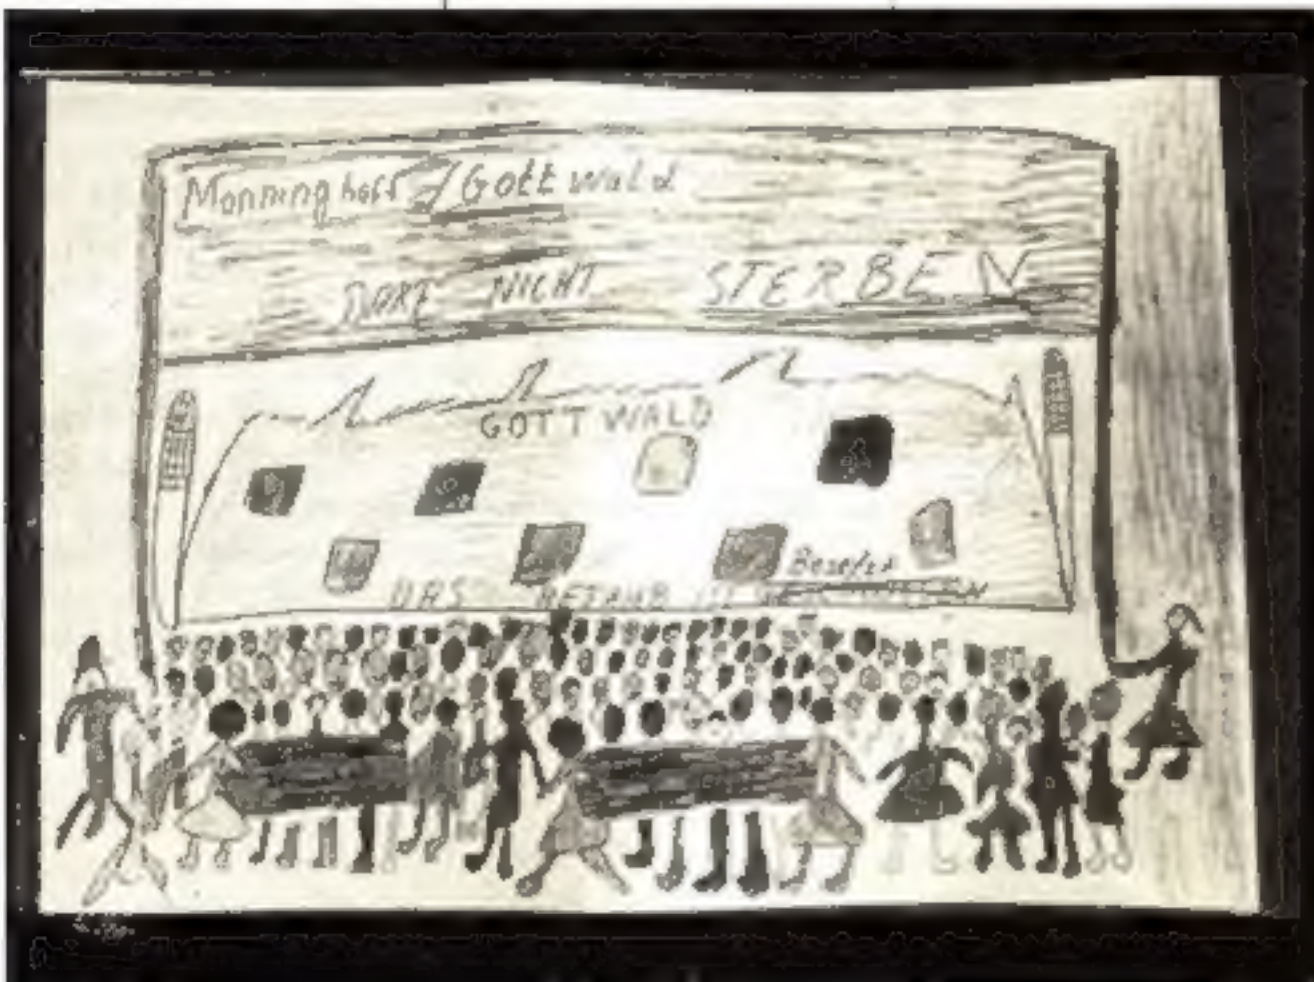 Monninghoff / Gottwald
DARF NICHT STERBEN
GOTTWALD
Besetzt
DAS